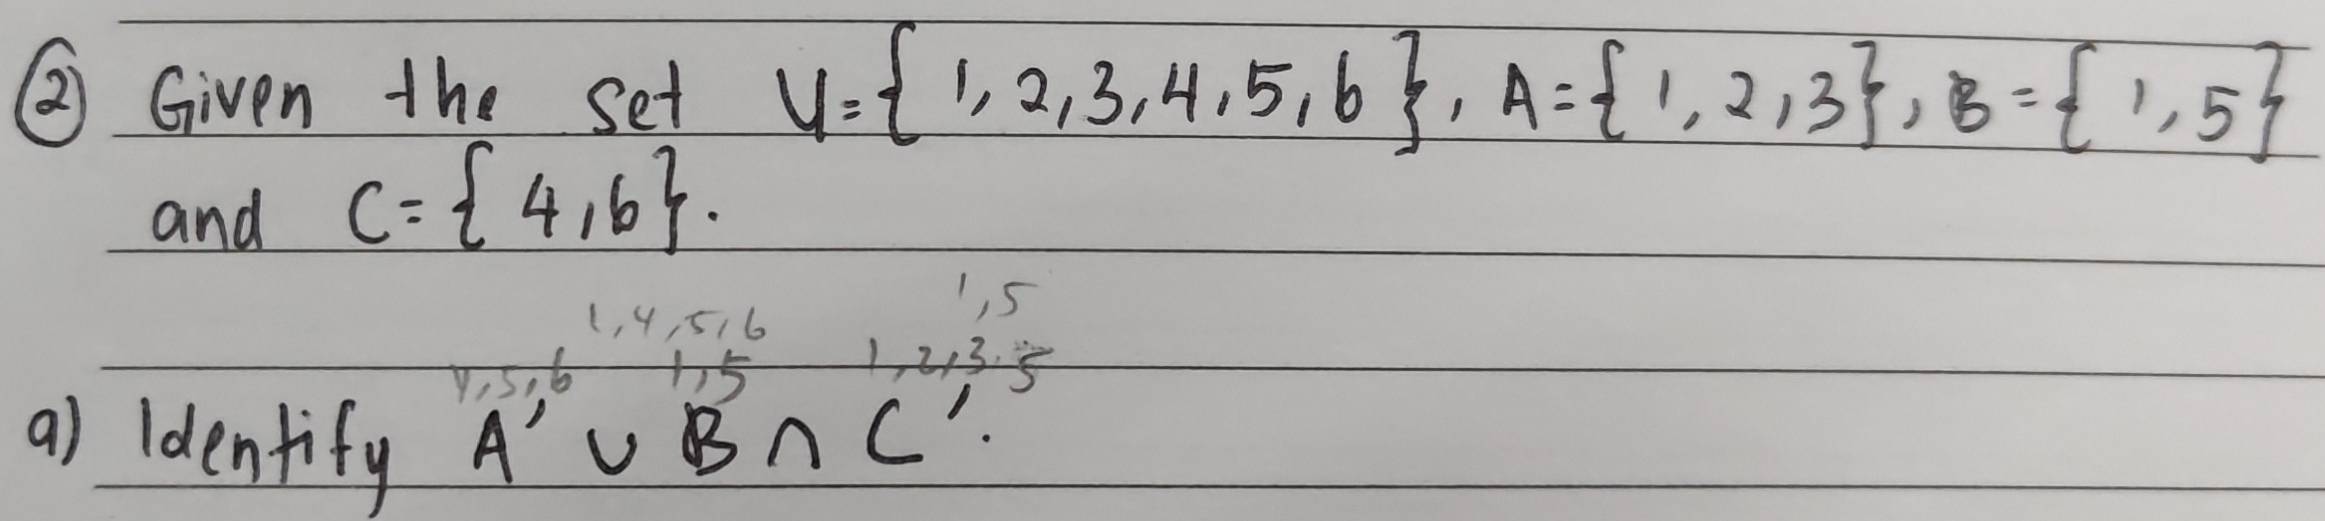 ② Given the set U={ 1, 2, 3, 4, 5, 6 }, A={ 1, 2, 3}, B={ 1, 5}
and C={ 4, 6}.
1, 5
1, 4, 5, 6
4, 5, 6 1, 5 1, 2, 3, 5
a) Identify A' ∪ B ∩ C'.